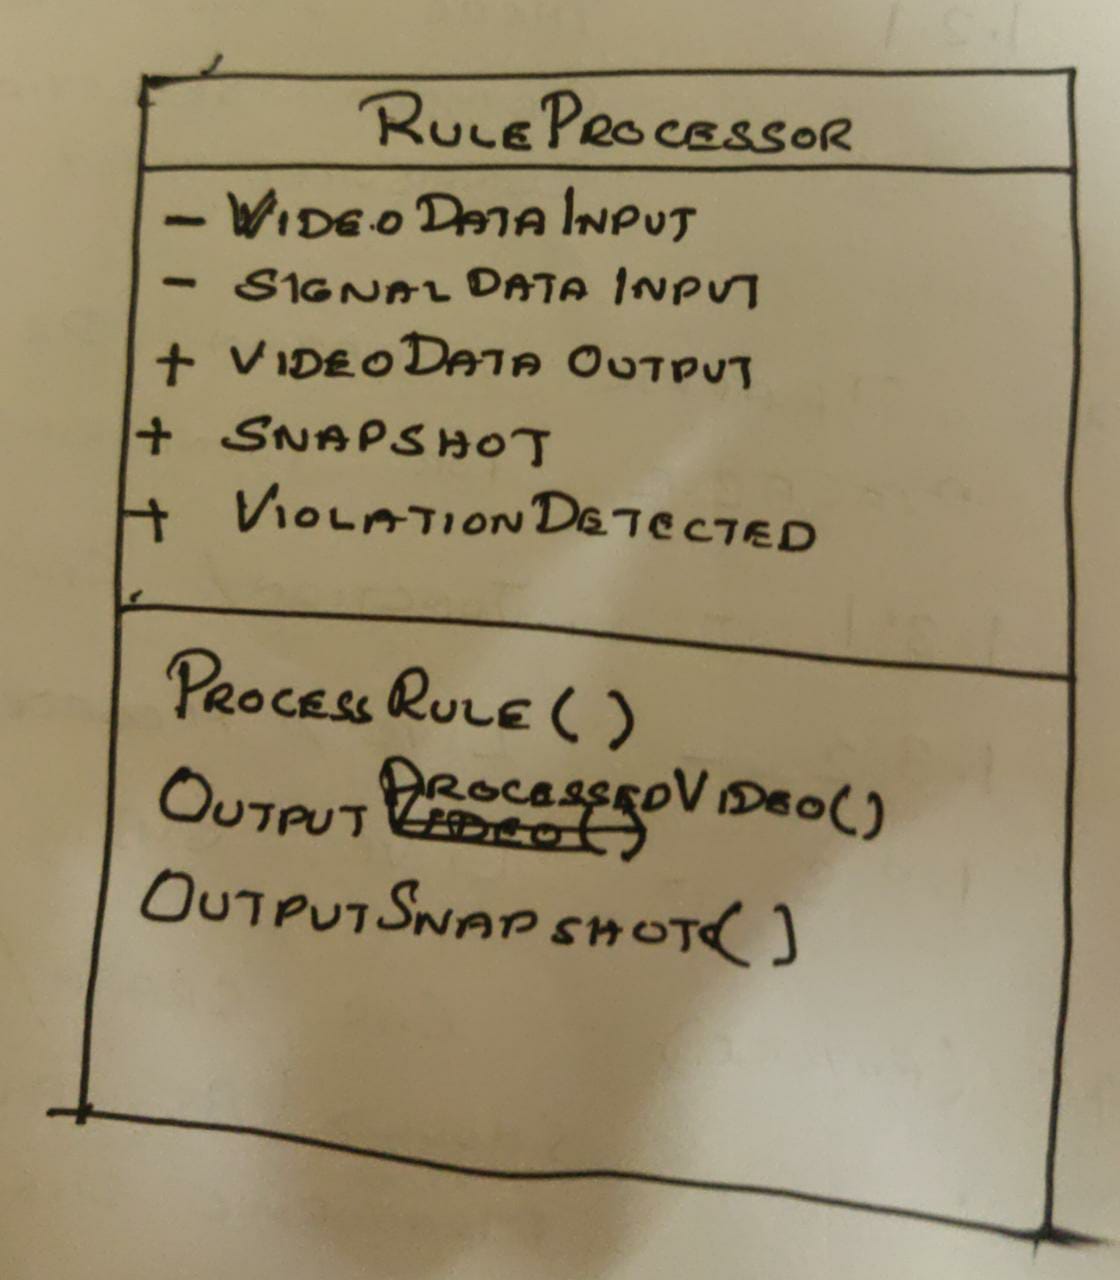 RULEPROCESSOR
- VIDEO DATA INPUT
- SIGNAL DATA INPUT
+ VIDEO DATA OUTPUT
+ SNAPSHOT
+ VIOLATIONDETECTED
PROCESSRULE()
OUTPUT PROCESSEDVIDEO()
VIDEO()
OUTPUTSNAPSHOT()